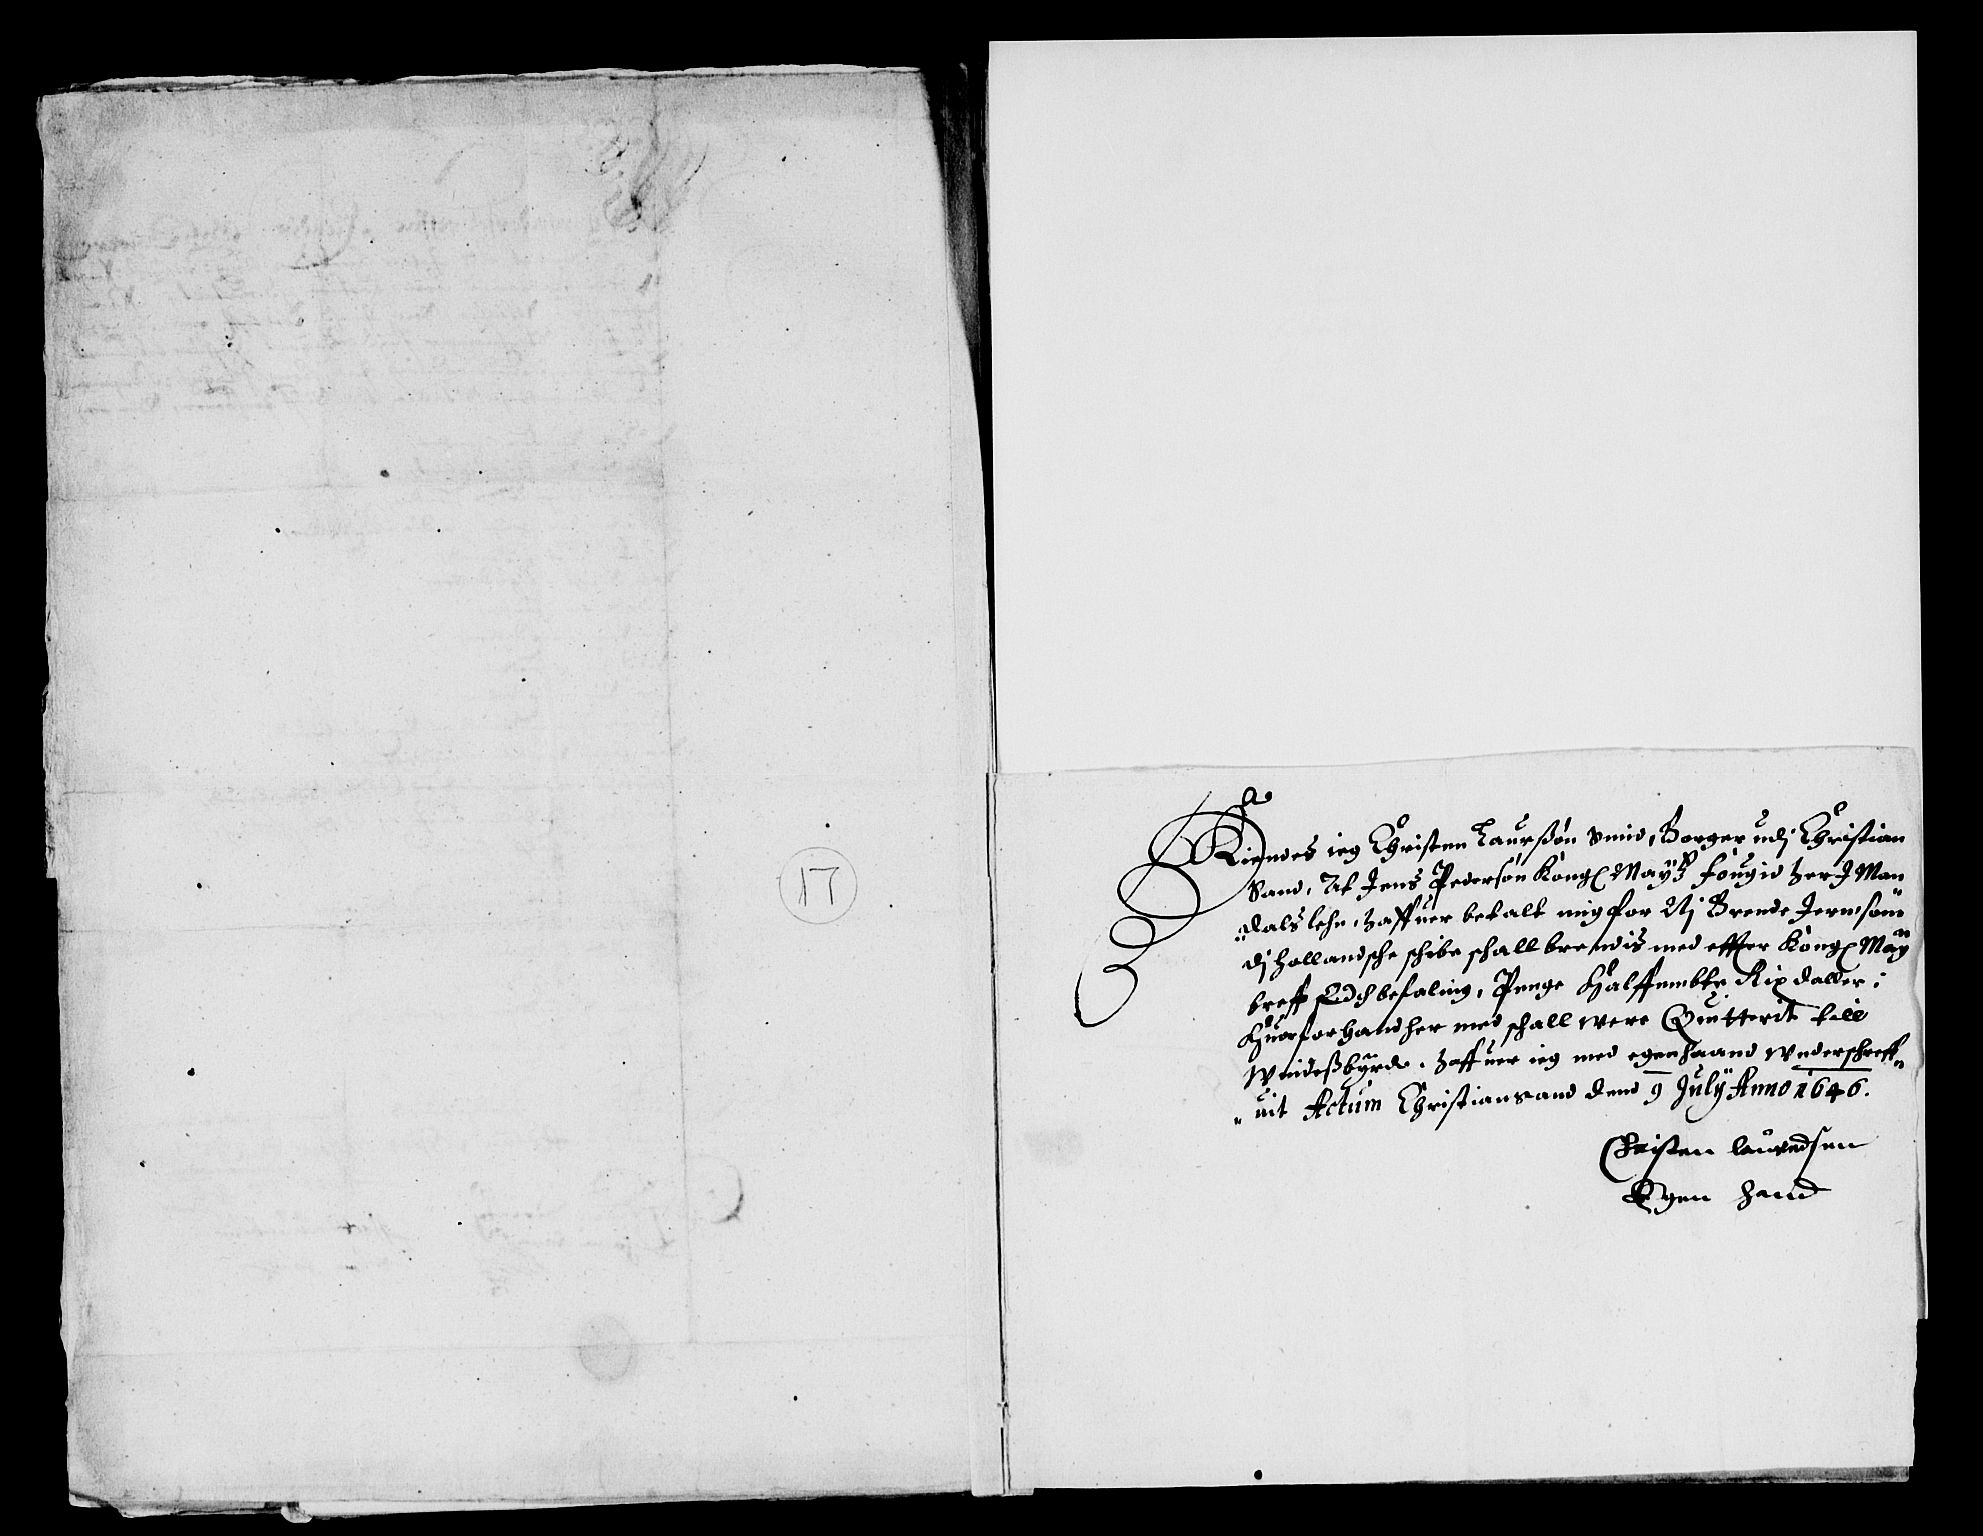 17
Kiendes ieg Christen Laurßön Smid, Borger udj Christian
Sand, At Jens Pedersön Kong: Maytz fougid her J Man
dals lehn, haffuer betalt mig for Brende Jern, som
dj hollandsche schibe schall brendis med effter Kong: May
breff och befaling, Penge Halffembte Rix daller:
Huorfor hand her med schall were Quitterit till
Windeßbyrd haffuer ieg med egen haand underschreff
uit Actum Christiansand dend 9 July Anno 1646.
Christen lauredsen
Egen Hand